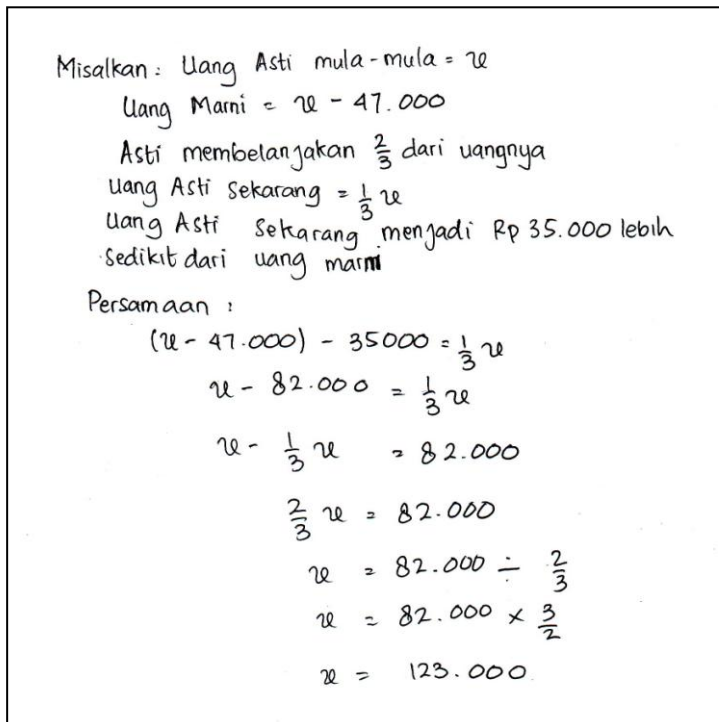 Misalkan : Uang Asti mula-mula = x
Uang Marni = x - 47.000
Asti membelanjakan 2/3 dari uangnya
uang Asti sekarang = 1/3 x
uang Asti sekarang menjadi Rp 35.000 lebih
sedikit dari uang marni
Persamaan :
(x - 47.000) - 35000 = 1/3 x
x - 82.000 = 1/3 x
x - 1/3 x = 82.000
2/3 x = 82.000
x = 82.000 ÷ 2/3
x = 82.000 × 3/2
x = 123.000